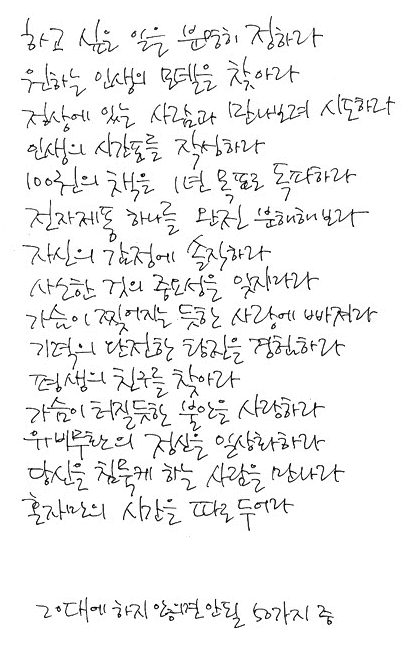 하고 싶은 일을 분명히 정하라
원하는 인생의 모델을 찾아라
정상에 있는 사람과 만나보려 시도하라
인생의 시간표를 작성하라
100권의 책을 1년 목표로 독파하라
전자제품 하나를 완전 분해해보라
자신의 감정에 솔직하라
사소한 것의 중요성을 잊지마라
가슴이 찢어지는 듯한 사랑에 빠져라
기력의 탄진한 탕진을 경험하라
평생의 친구를 찾아라
가슴이 터질듯한 불안을 사랑하라
유비무환의 정신을 일상화하라
당신을 침묵케 하는 사람을 만나라
혼자만의 시간을 따로 두어라
20대에 하지 않으면 안될 50가지 중